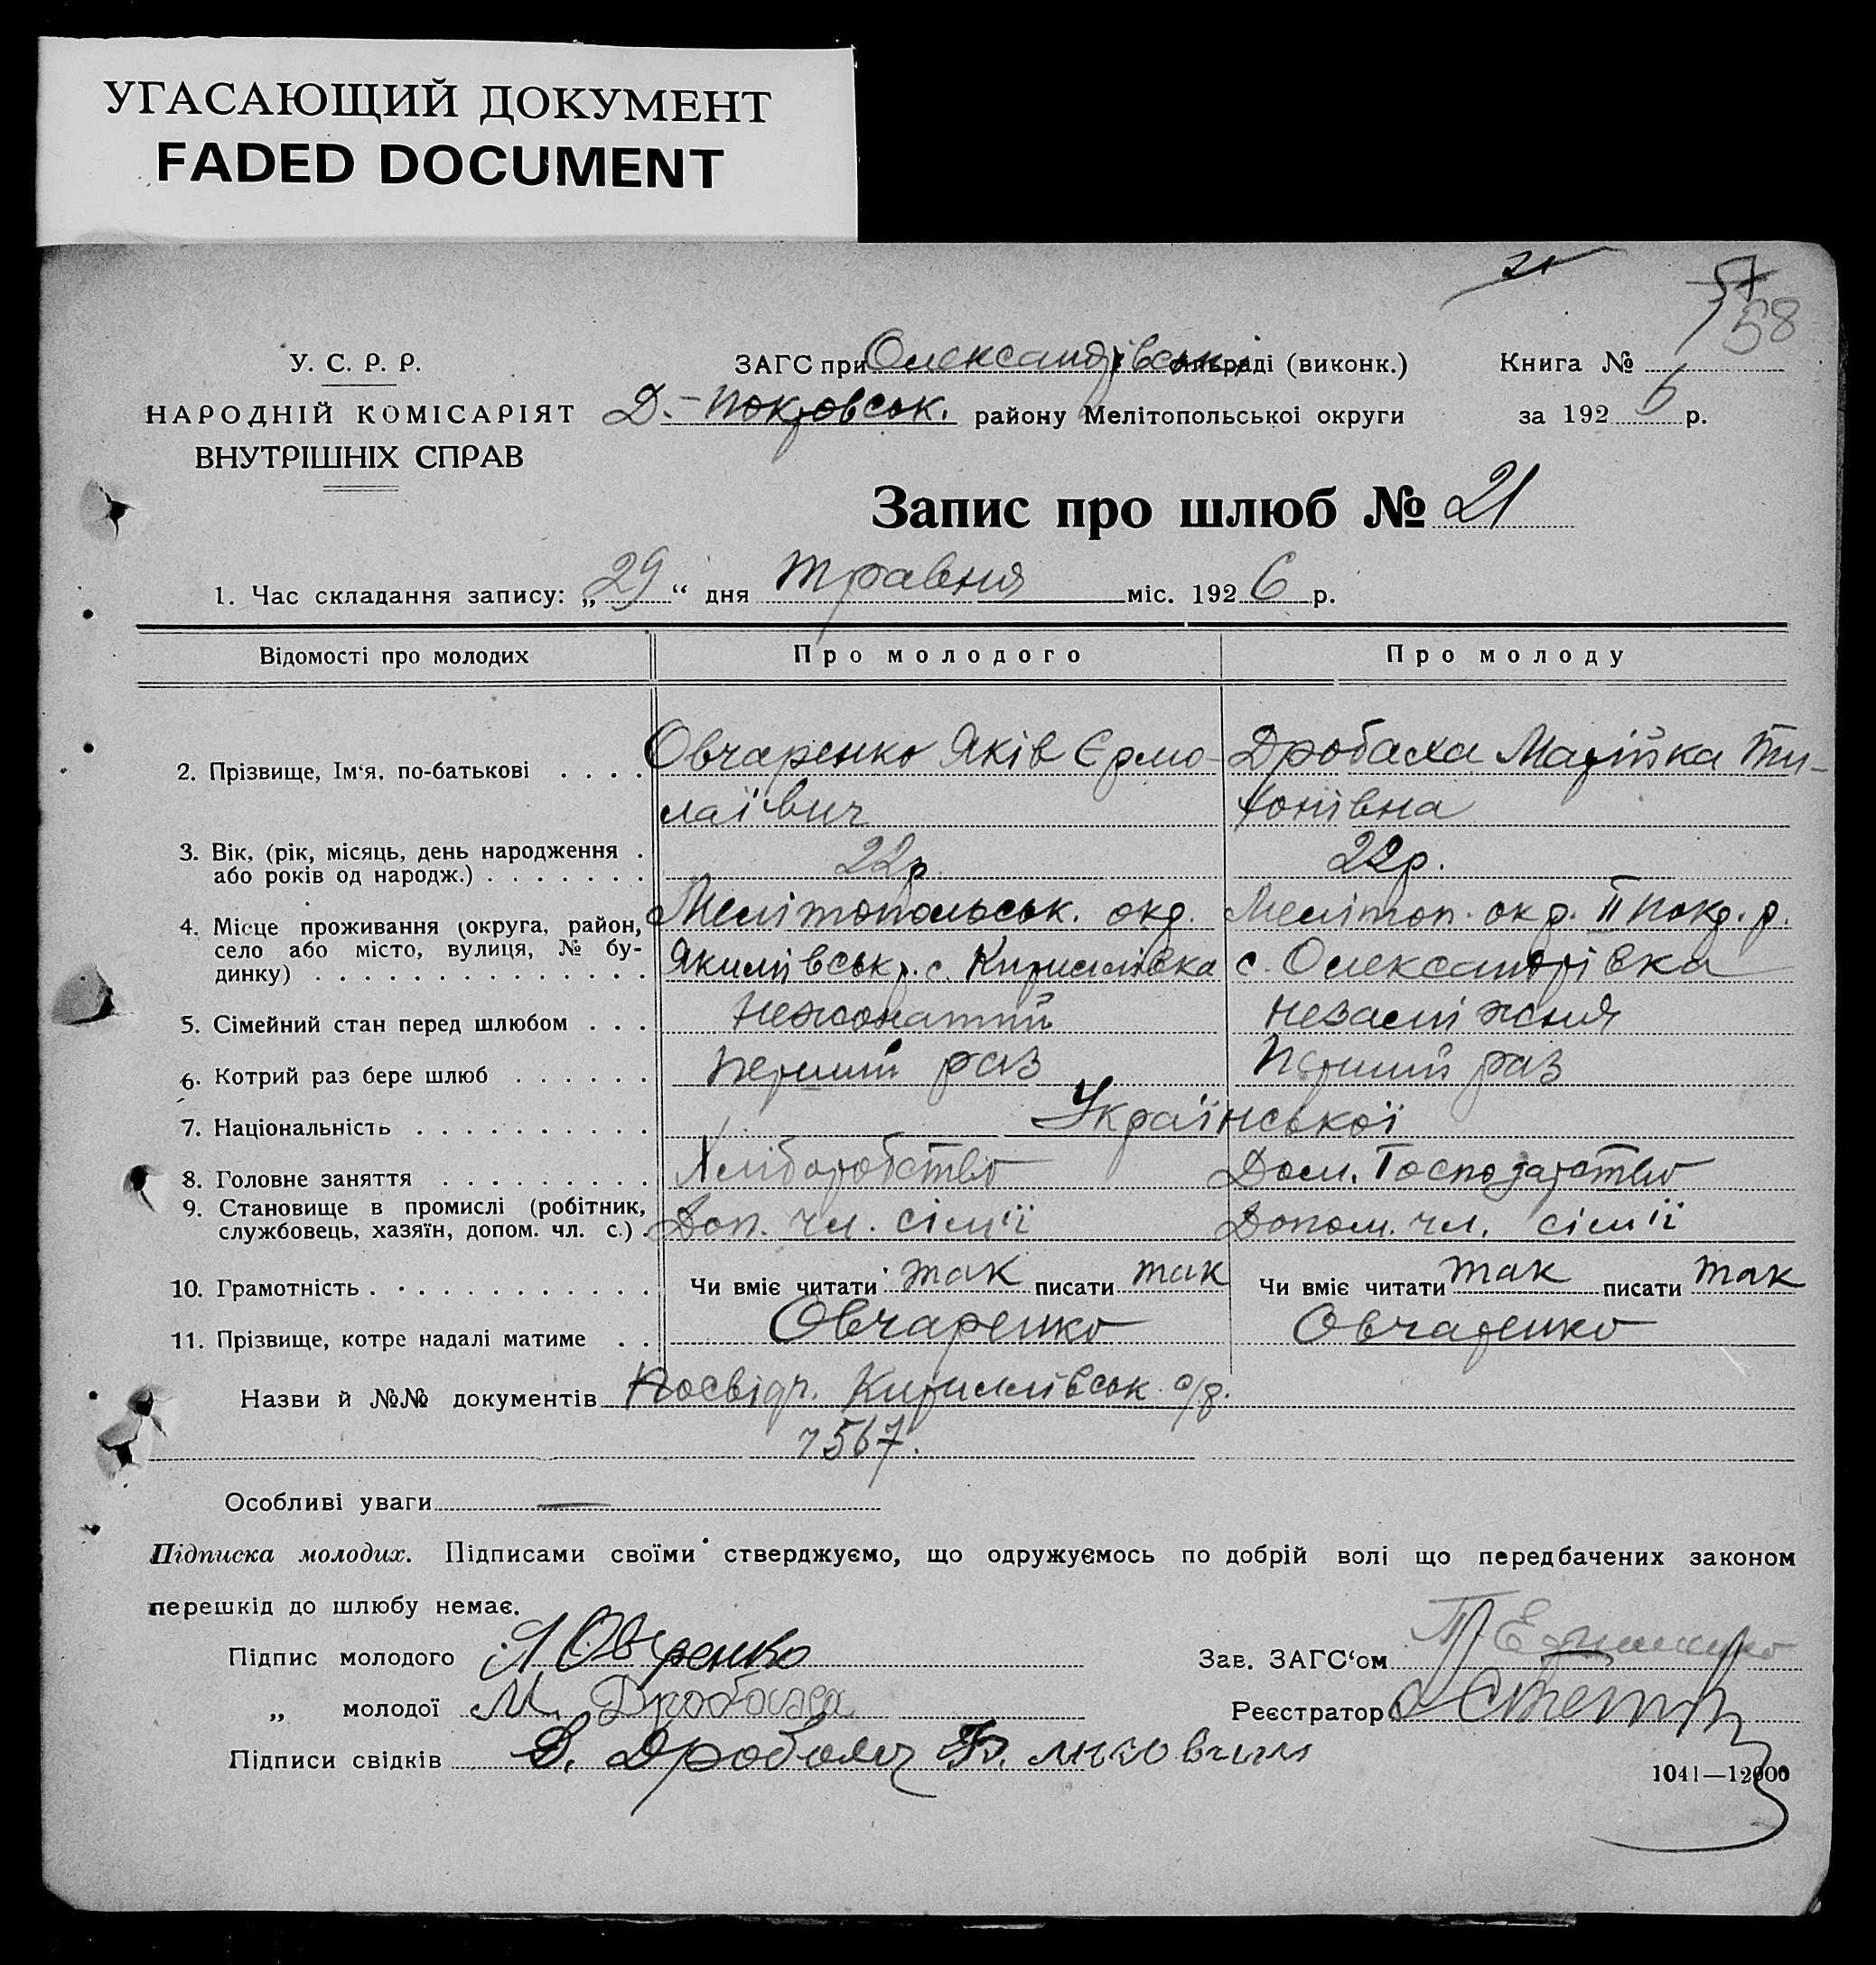 УГАСАЮЩИЙ ДОКУМЕНТ
FADED DOCUMENT
21
57
58
У. С. Р. Р.
НАРОДНІЙ КОМІСАРІЯТ
ВНУТРІШНІХ СПРАВ
ЗАГС при Олександрівськ. сільраді (виконк.)
Д.-Покровськ. району Мелітопольськоі округи
Книга №
за 1926 р.
Запис про шлюб № 21
1. Час складання запису: „29“ дня травня міс. 1926 р.
Відомості про молодих Про молодого Про молоду
2. Прізвище, Ім‘я, по-батькові . . . . Овчаренко Яків Єрмо- Дробаха Марійка Ти-
лаївич хонівна
3. Вік, (рік, місяць, день народження .
або років од народж.) . . . . . . . 22р. 22р.
4. Місце проживання (округа, район, Мелітопольськ. окр. Мелітоп. окр. II Покр. р.
село або місто, вулиця, № бу- Якимівськ р. с. Кирилівка с. Олександрівка
динку) . . . . . . . . . . . . . .
5. Сімейний стан перед шлюбом . . . Нежонатий незаміжня
6. Котрий раз бере шлюб . . . . . . Перший раз Перший раз
7. Національність . . . . . . . . . . Української
8. Головне заняття . . . . . . . . . Хліборобство Дом. Господарство
9. Становище в промислі (робітник,
службовець, хазяїн, допом. чл. с.) . Доп. чл. сім'ї Допом. чл. сім'ї
10. Грамотність . . . . . . . . . . . . Чи вміє читати так писати так Чи вміє читати так писати так
11. Прізвище, котре надалі матиме . . Овчаренко Овчаренко
Назви й №№ документів Посвідч. Кирилівськ с/р.
ч 567.
Особливі уваги —
Підписка молодих. Підписами своїми стверджуємо, що одружуємось по добрій волі що передбачених законом
перешкід до шлюбу немає.
Підпис молодого Я Овчренко
Зав. ЗАГС‘ом
„ молодої М. Дробаха
Реєстратор
Підписи свідків Д. Дробаха
1041—12000